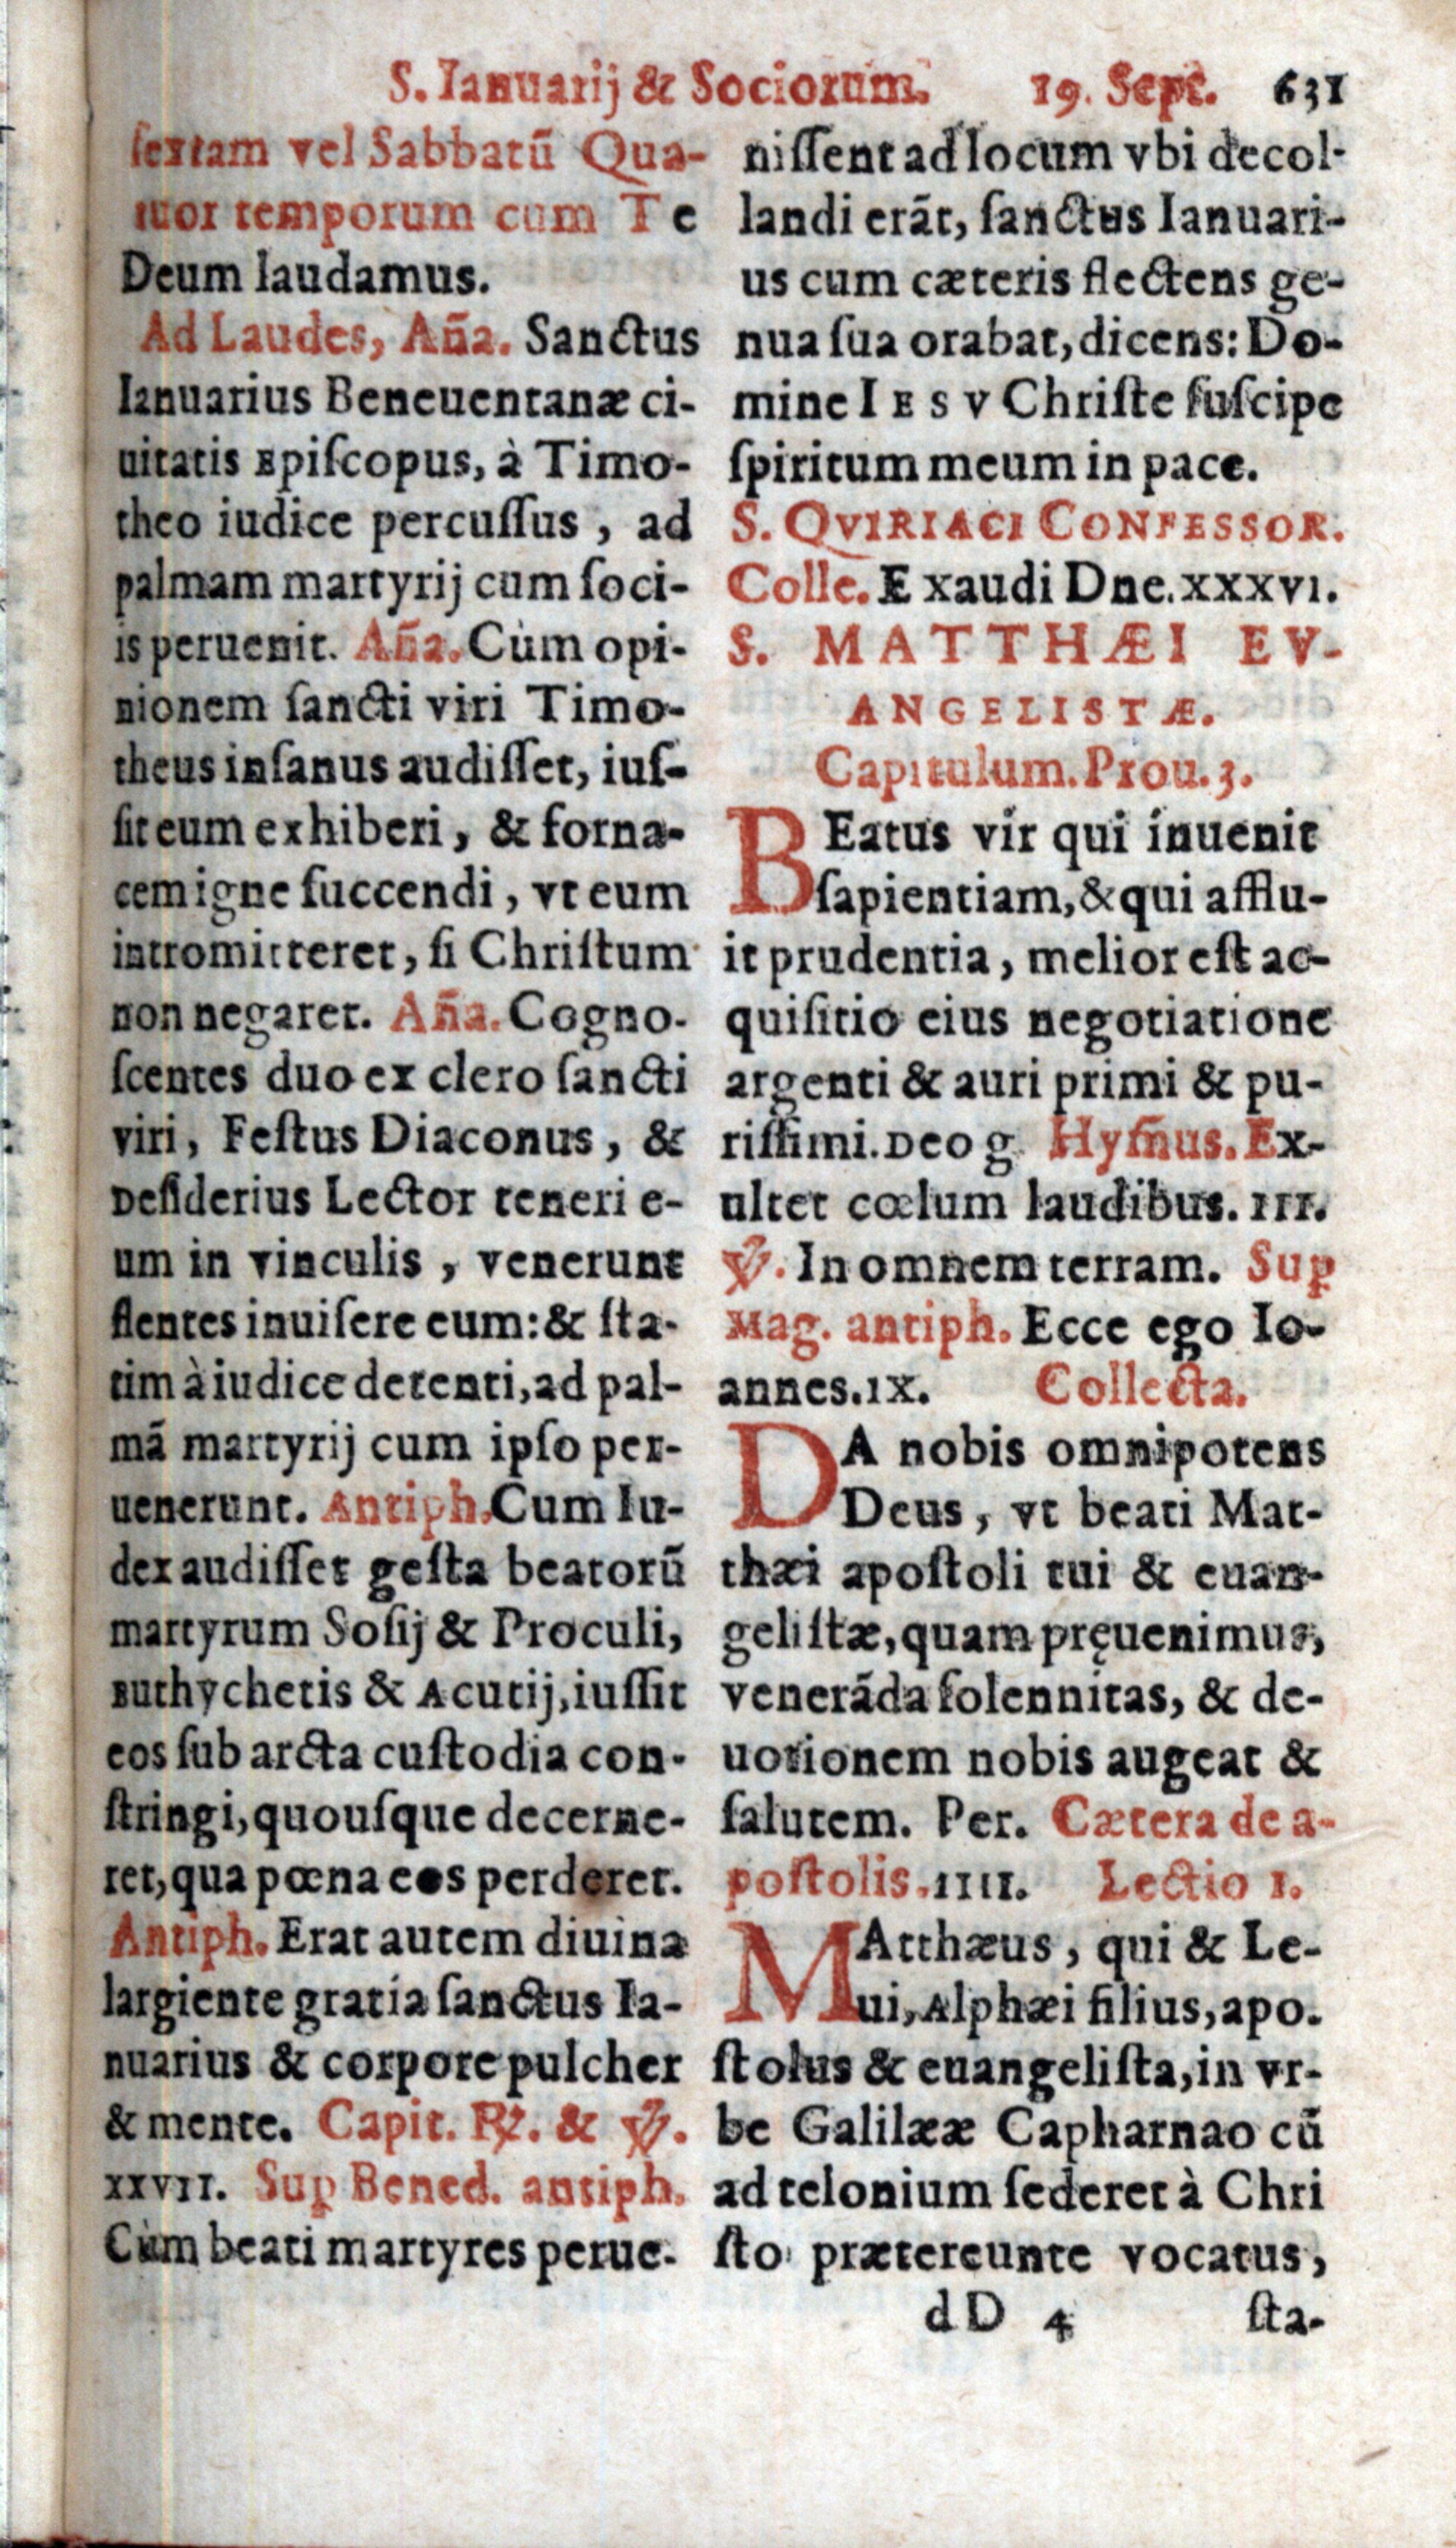 S. Ianuarij & Sociorum. 19. Sept. 631
ſextam vel Sabbatū Qua-
tuor temporum cum Te
Deum laudamus.
Ad Laudes, Aña. Sanctus
Ianuarius Beneuentanæ ci-
uitatis Epiſcopus, à Timo-
theo iudice percuſſus, ad
palmam martyrij cum ſoci-
is peruenit. Aña. Cùm opi-
nionem ſancti viri Timo-
theus inſanus audiſſet, iuſ-
ſit eum exhiberi, & forna-
cem igne ſuccendi, vt eum
intromitteret, ſi Chriſtum
non negaret. Aña. Cogno-
ſcentes duo ex clero ſancti
viri, Feſtus Diaconus, &
Deſiderius Lector teneri e-
um in vinculis, venerunt
flentes inuiſere eum: & ſta-
tim à iudice detenti, ad pal-
mā martyrij cum ipſo per-
uenerunt. Antiph. Cum Iu-
dex audiſſet geſta beatorū
martyrum Soſij & Proculi,
Euthychetis & Acutij, iuſſit
eos ſub arcta cuſtodia con-
ſtringi, quouſque decerne-
ret, qua pœna eos perderet.
Antiph. Erat autem diuina
largiente gratia ſanctus Ia-
nuarius & corpore pulcher
& mente. Capit. ℟. & ℣.
XXVII. Sup Bened. antiph.
Cùm beati martyres perue-
niſſent ad locum vbi decol-
landi erāt, ſanctus Ianuari-
us cum cæteris flectens ge-
nua ſua orabat, dicens: Do-
mine IESV Chriſte ſuſcipe
ſpiritum meum in pace.
S. QVIRIACI CONFESSOR.
Colle. Exaudi Dne. XXXVI.
S. MATTHÆI EV-
ANGELISTÆ.
Capitulum. Prou. 3.
BEatus vir qui inuenit
ſapientiam, & qui afflu-
it prudentia, melior eſt ac-
quiſitio eius negotiatione
argenti & auri primi & pu-
riſſimi. Deo g. Hym̄us. Ex-
ultet cœlum laudibus. III.
℣. In omnem terram. Sup
Mag. antiph. Ecce ego Io-
annes. IX. Collecta.
DA nobis omnipotens
Deus, vt beati Mat-
thæi apoſtoli tui & euan-
geliſtæ, quam pręuenimus,
venerāda ſolennitas, & de-
uotionem nobis augeat &
ſalutem. Per. Cætera de a-
poſtolis. IIII. Lectio I.
MAtthæus, qui & Le-
ui, Alphæi filius, apo-
ſtolus & euangeliſta, in vr-
be Galilææ Capharnao cū
ad telonium ſederet à Chri
ſto prætereunte vocatus,
dD 4 ſta-